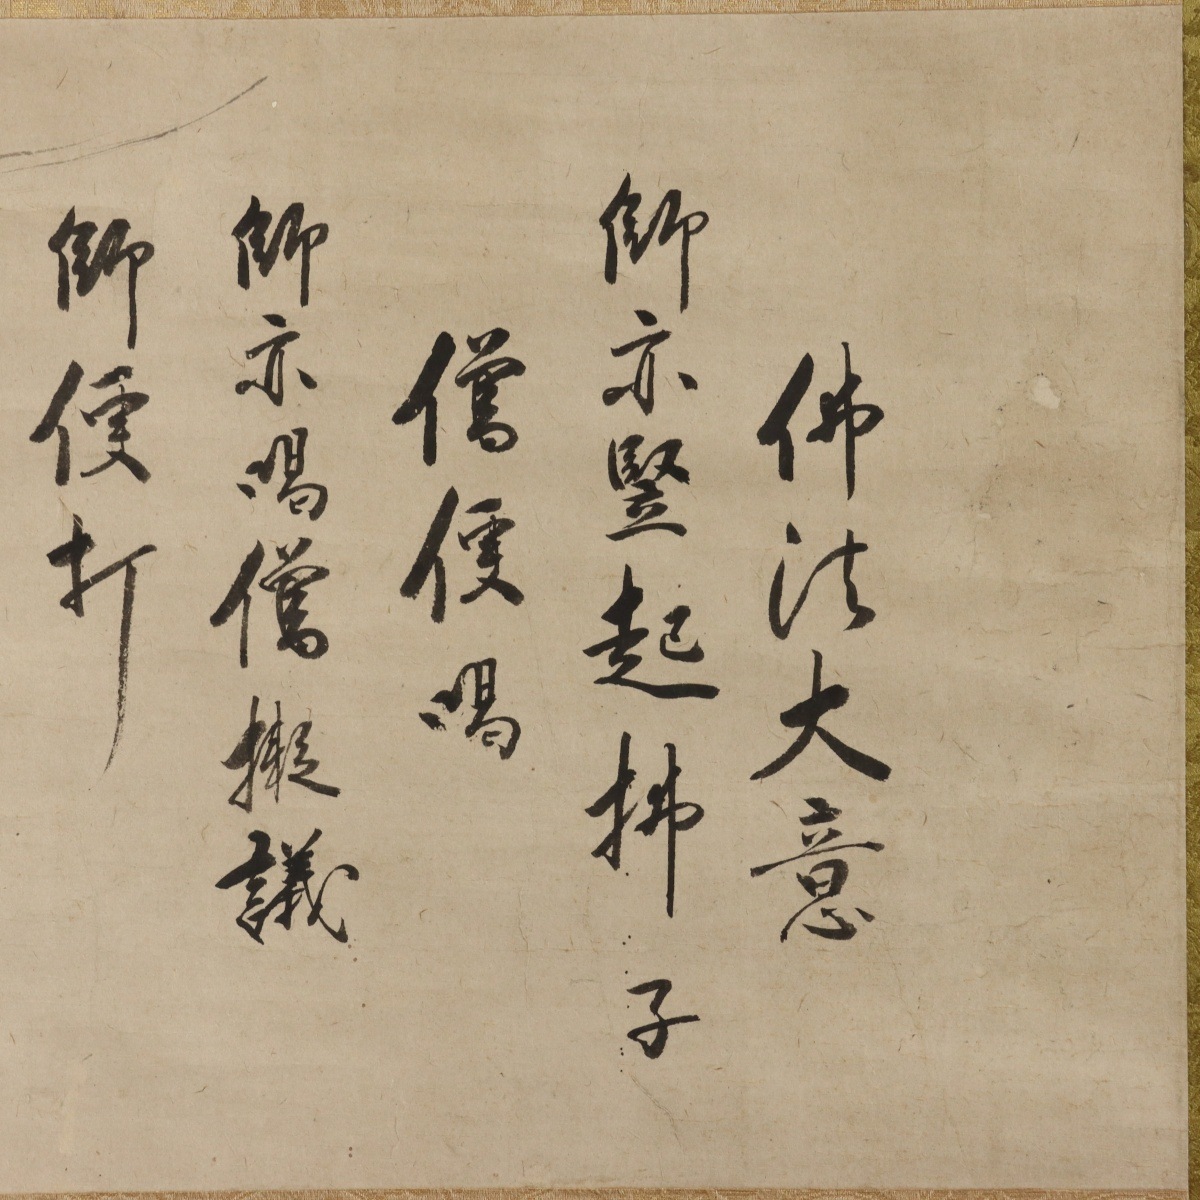 佛法大意
師亦竪起拂子
僧便喝
師亦喝僧擬議
師便打